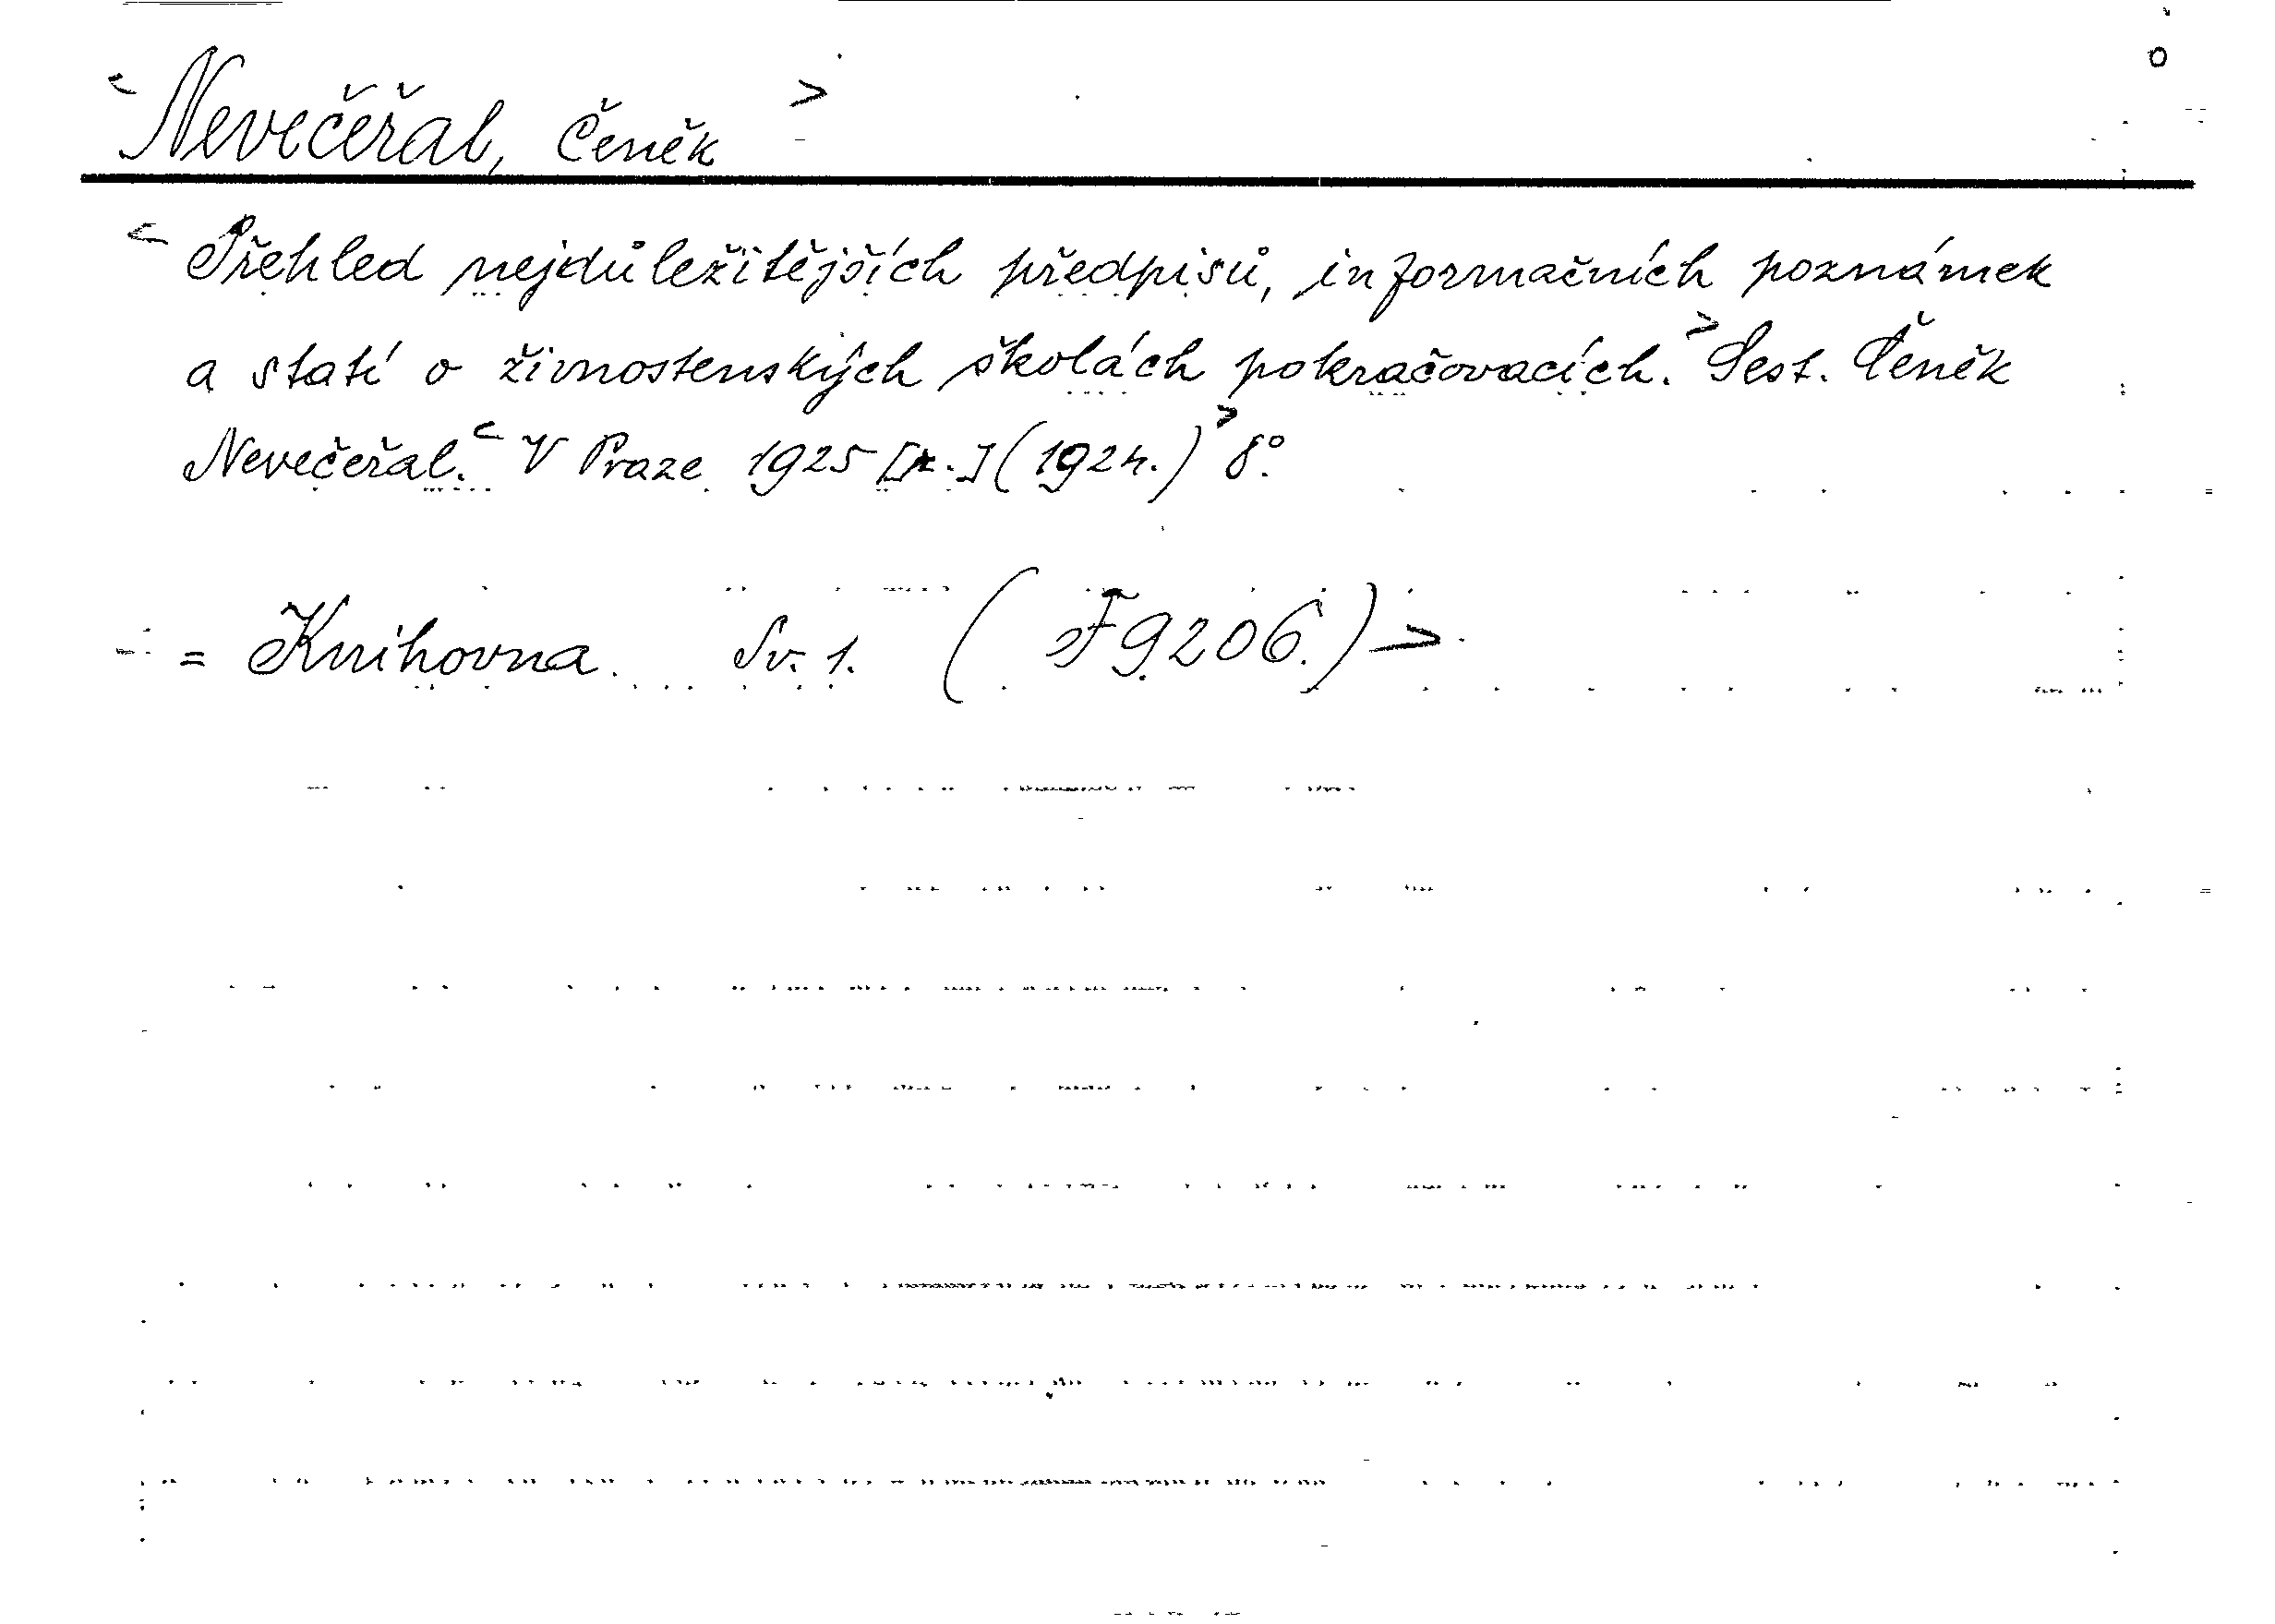 < Nevečeřal, Čeněk >
< Přehled nejdůležitějších předpisů, informačních poznámek
a statí o živnostenských školách pokračovacích. > Sest. Čeněk
Nevečeřal. < V Praze 1925 [z.] (1924.) > 8°.
= Knihovna. Sv. 1. ( F 9206.) >